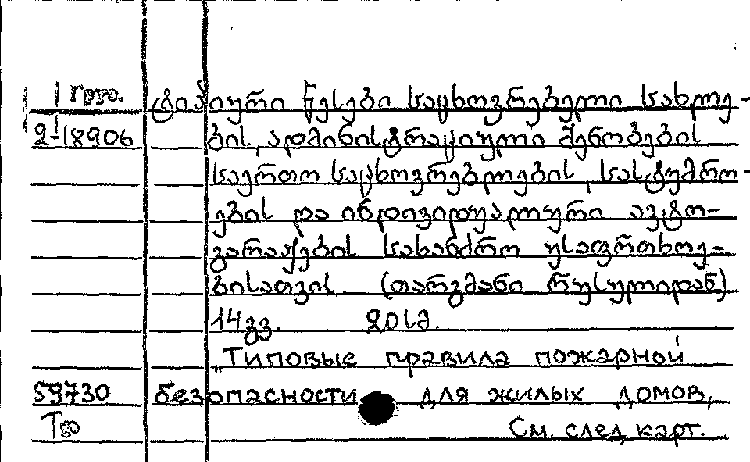 ტიპიური წესები საცხოვრებელი სახლე-
2-18906 ბის, ადმინისტრაციული შენობების
საერთო საცხოვრებლების, სასტუმრო-
ების და ინდივიდუალური ავტო-
გარაჟების სახანძრო უსაფრთხოე-
ბისათვის. (თარგმანი რუსულიდან)
14 გვ. 20 სმ.
„Типовые правила пожарной
59730 безопасности для жилых домов,
См. след карт.